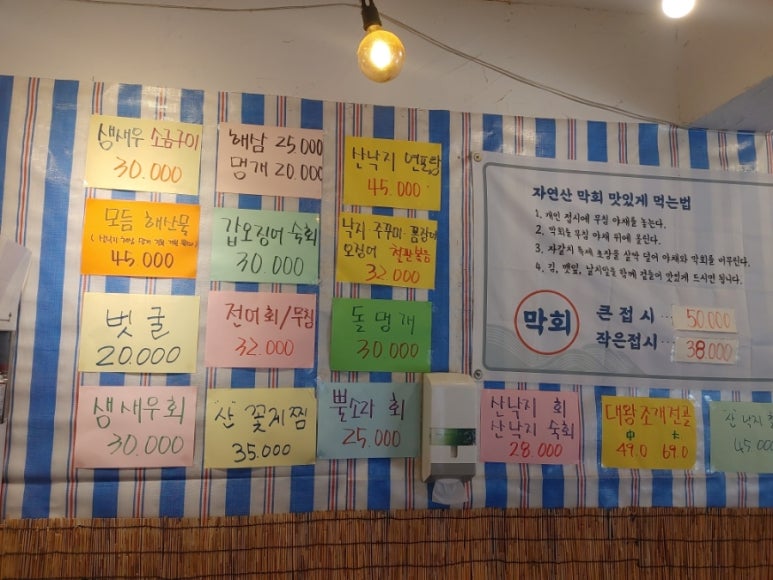 생새우 소금구이
30.000
해삼 25.000
멍게 20.000
산낙지 연포탕
45.000
모듬 해산물
45.000
갑오징어 숙회
30.000
낙지 주꾸미 꼼장어
오징어 철판볶음
32.000
벗굴
20.000
전어회/무침
32.000
돌멍게
30.000
생새우회
30.000
산 꽃게찜
35.000
뿔소라 회
25.000
자연산 막회 맛있게 먹는법
1. 개인 접시에 무침 야채를 놓는다.
2. 막회를 무침 야채 위에 올린다.
3. 자갈치 특제 초장을 살짝 덜어 야채와 막회를 버무린다.
4. 김, 깻잎, 날치알을 함께 곁들어 맛있게 드시면 됩니다.
막회
큰 접시 ... 50.000
작은접시 ... 38.000
산낙지 회
산낙지 숙회
28.000
대왕조개전골
中 大
49.0 69.0
산낙지
45.000